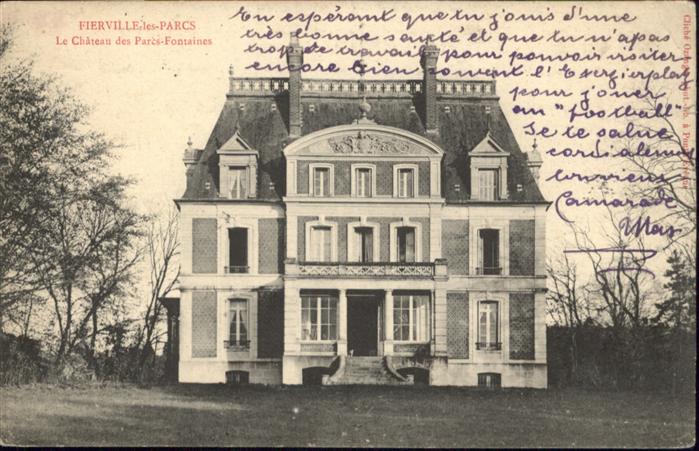 FIERVILLE-les-PARCS
Le Château des Parcs-Fontaines
En espérant que tu jouis d'une
très bonne santé et que tu n'a pas
trop de travail pour pouvoir visiter
encore bien souvent l'
pour jouer
au "football"
Je te salue
cordialement
ton vieux
Camarade
Max
Cliché